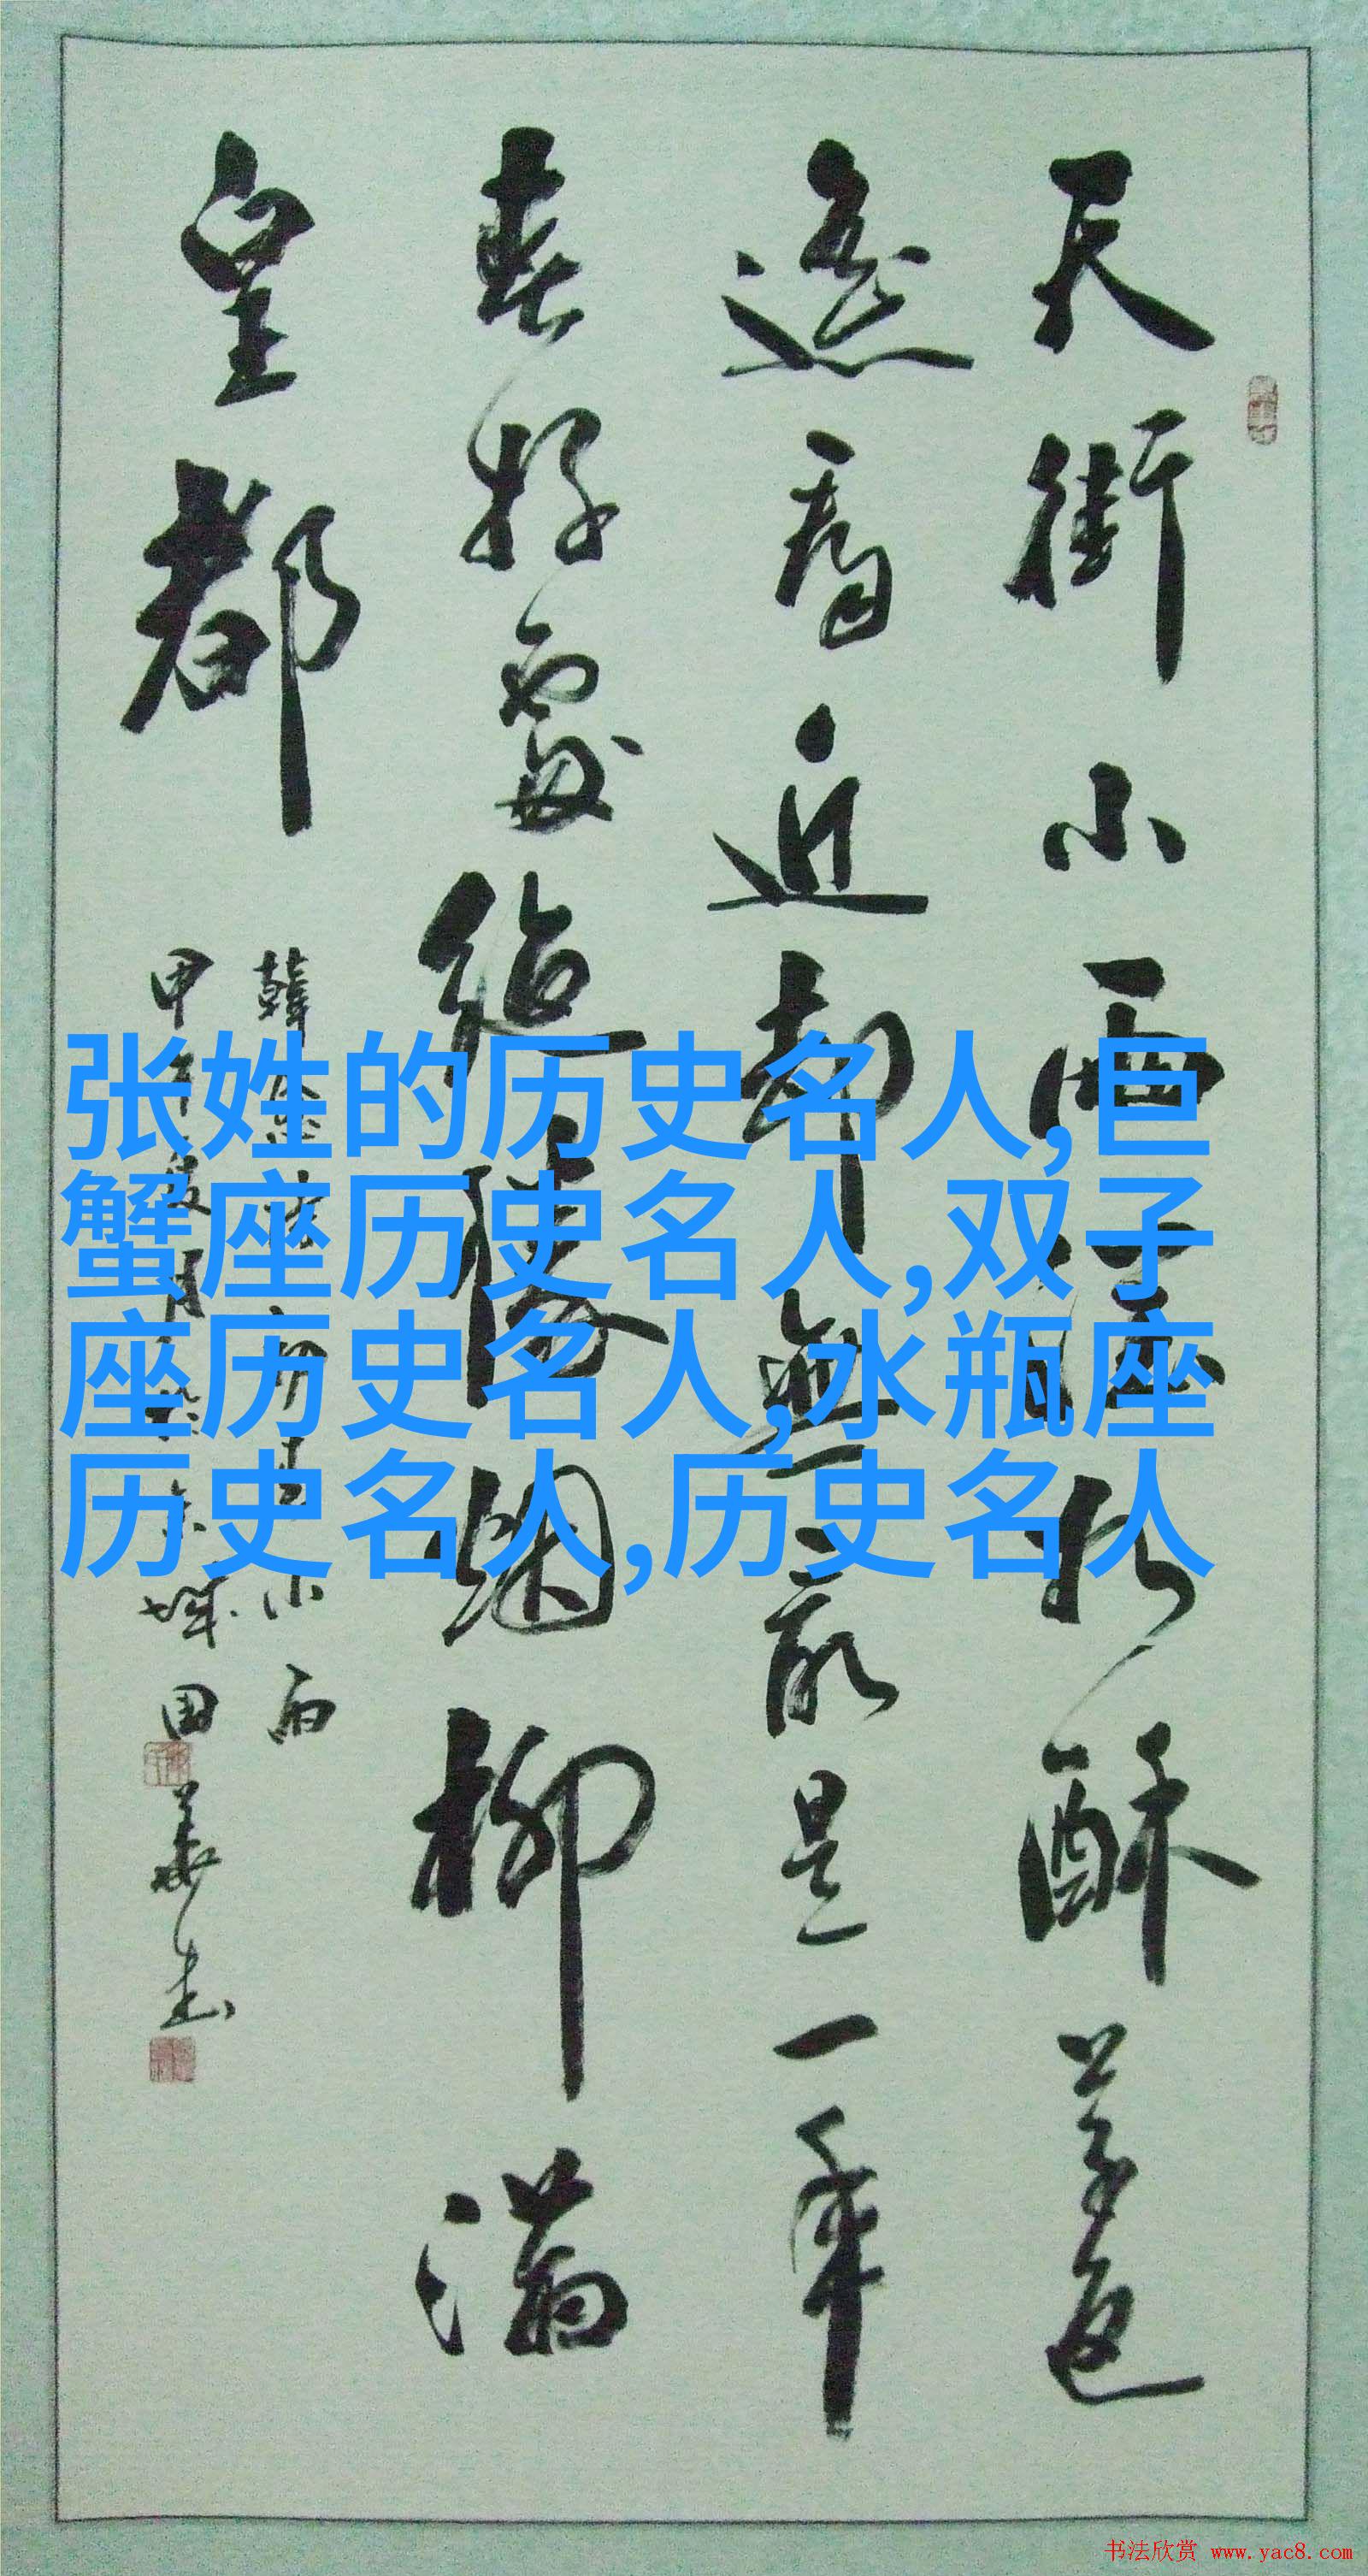 天街小雨潤如酥草色
遥看近却無最是一年
春好處絶勝烟柳滿
皇都
韓愈詩初春小雨
甲申
城国華書
张姓的历史名人,巨
蟹座历史名人,双子
座历史名人,水瓶座
历史名人,历史名人
书法欣赏 www.yac8.com